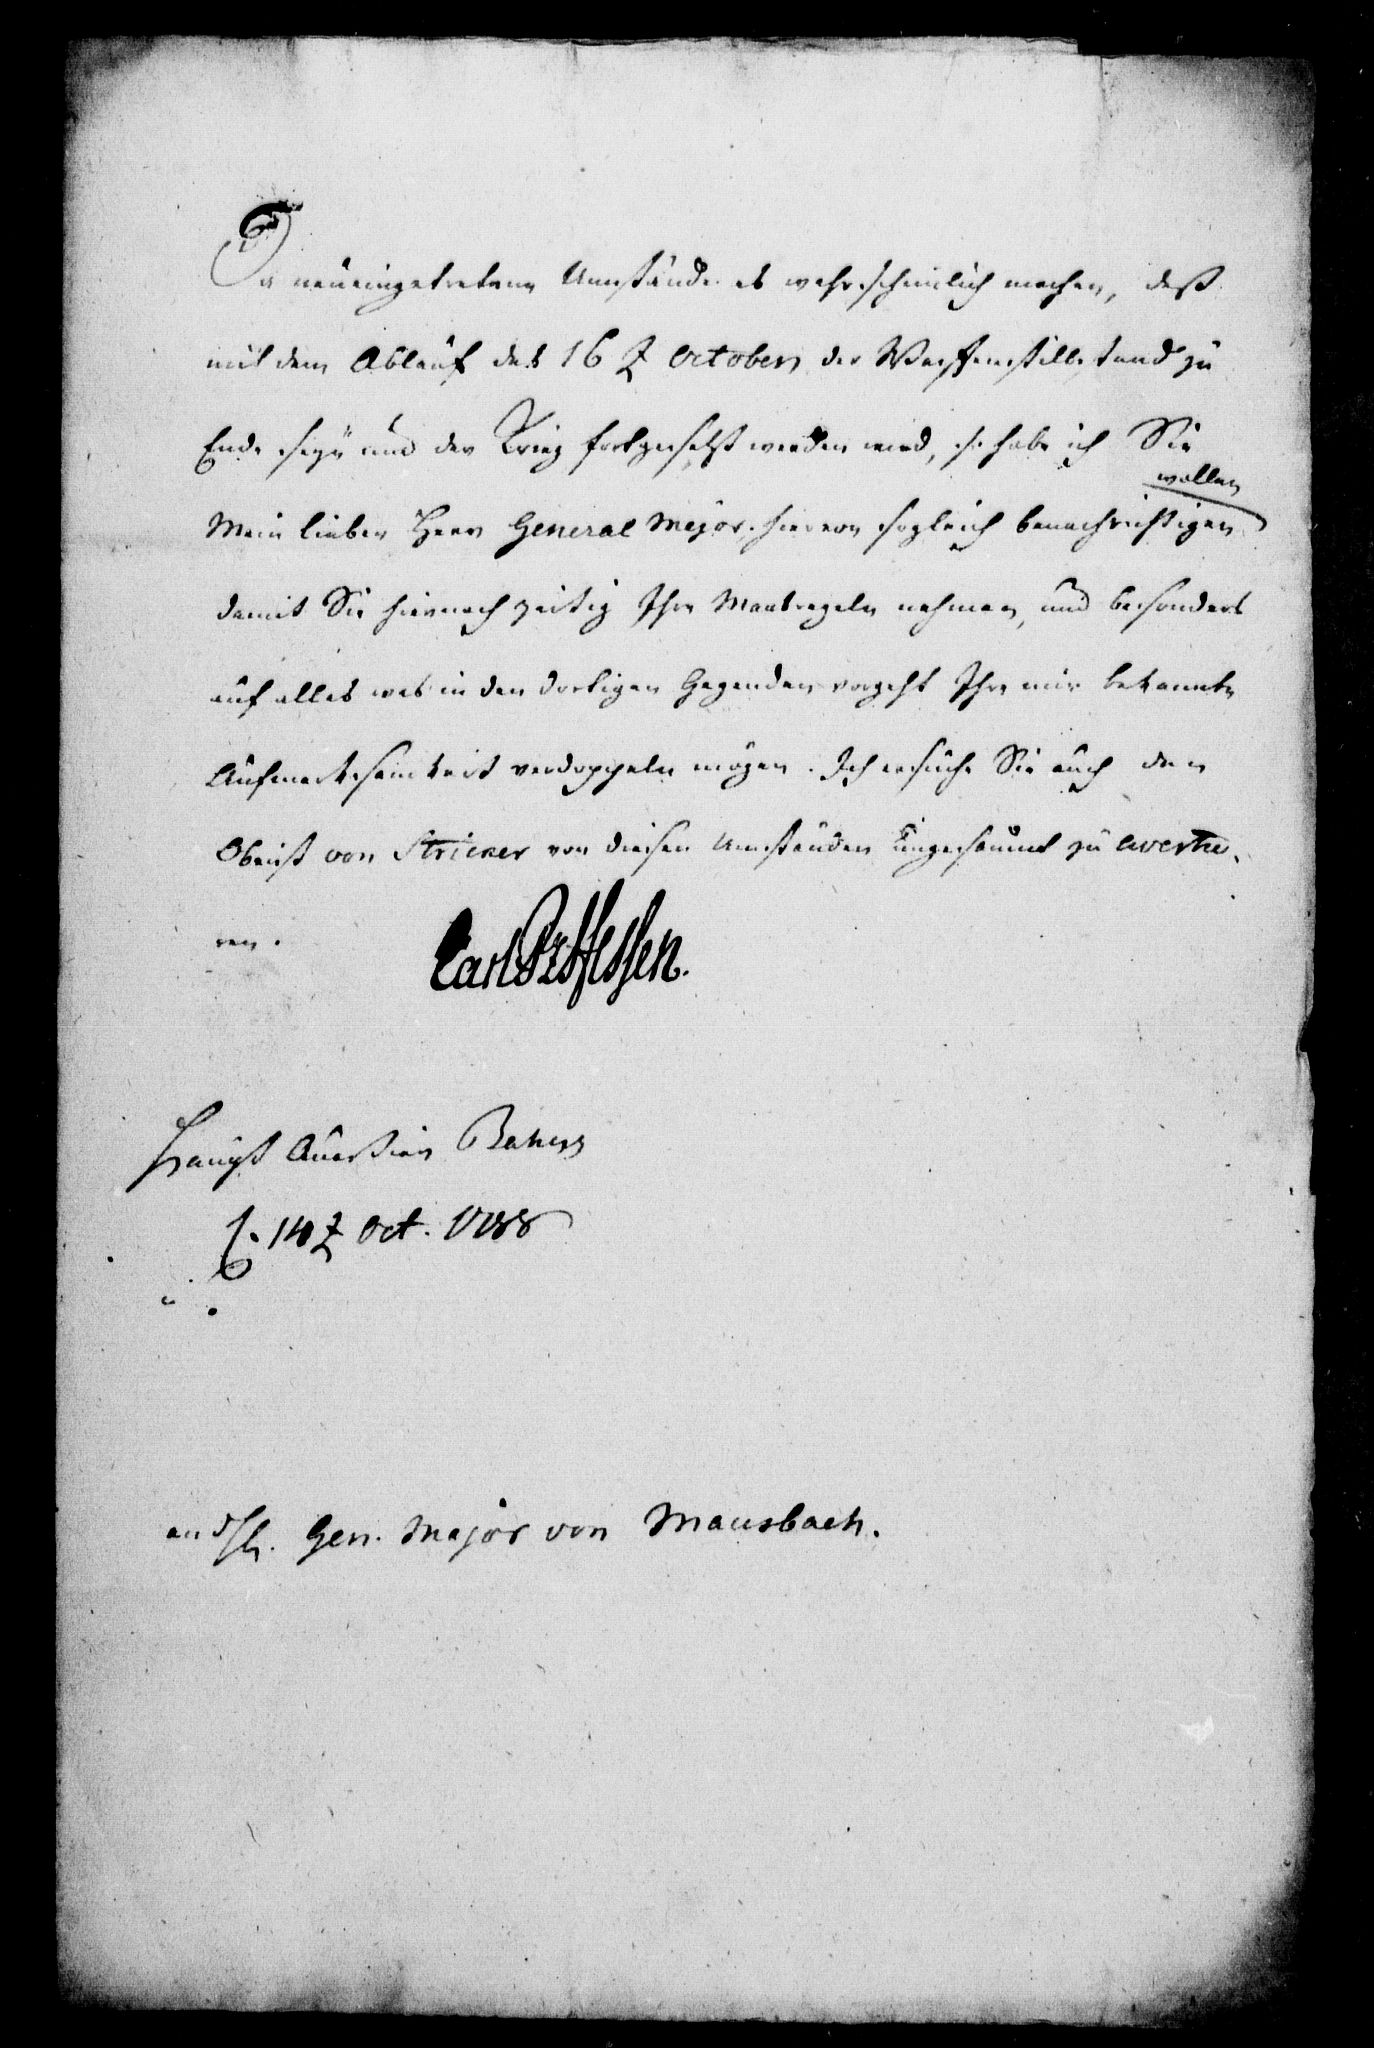 Da neüeingetretene Umstände es wahrscheinlich machen, daß
mit dem Ablauf des 16 t October der Waffenstillstand zu
Ende seyn und der Krieg fortgesetzt werden wird, so habe ich Sie
wollen
Mein lieber Herr General Major hievon sogleich benachrichtigen
damit Sie hiernach zeitig Ihre Maasregeln nehmen, und besonders
auf alles was in den dortigen Gegenden vorgeht Ihre mir bekannte
Aufmerksamkeit verdoppeln mögen. Ich ersuche Sie auch den
Obrist von Stricker von diesen Umständen ungesäumt zu averti-
ren.
Carl Pz Hessen.
Haupt Quartier Bahuus
d. 14 t Oct. 1788
an d H. Gen. Major von Mansbach.